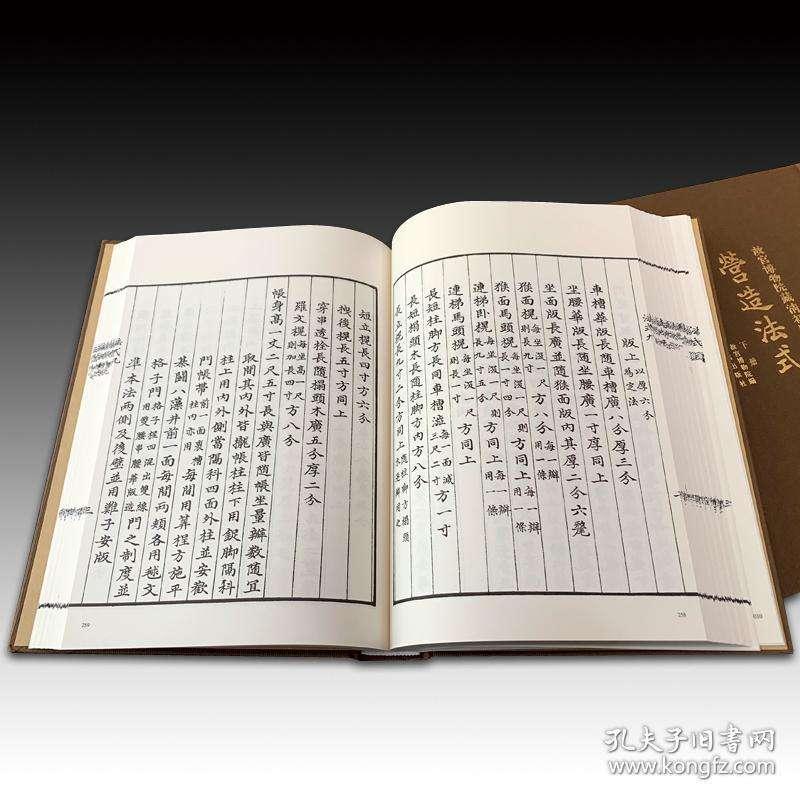 版上以厚六分爲定法
車槽華版長隨車槽廣八分厚三分
坐腰華版長隨坐腰廣一寸厚同上
坐面版長廣並隨猴面版内其厚二分六氂
猴面榥每坐深一尺則長九寸方八分每一瓣用一條
猴面馬頭榥每坐深一尺則長一寸四分方同上每一瓣用一條
連梯卧榥每坐深一尺則長九寸五分方同上每一瓣用一條
連梯馬頭榥每坐深一尺則長一寸方同上
長短柱脚方長同車槽澁每一面減三尺二寸方一寸
長短榻頭木長隨柱脚方内方八分
長立榥長九寸二分方同上
258
短立榥長四寸方六分
拽後榥長五寸方同上
穿串透栓長隨榻頭木廣五分厚二分
羅文榥每坐高一尺則加長四寸方八分
帳身高一丈二尺五寸長與廣皆隨帳坐量瓣數隨宜
取間其内外皆攏帳柱柱下用鋜脚隔科
柱上用内外側當隔科四面外柱並安歡
門帳帶前一面裏槽柱内亦用每間用筭桯方施平
棊鬭八藻井前一面每間兩頰各用毬文
格子門格子桯四混出雙線用雙腰串腰華版造門之制度並
準本法兩側及後壁並用難子安版
259
故宫博物院藏清
營造法式
下册
孔夫子旧书网
www.kongfz.com